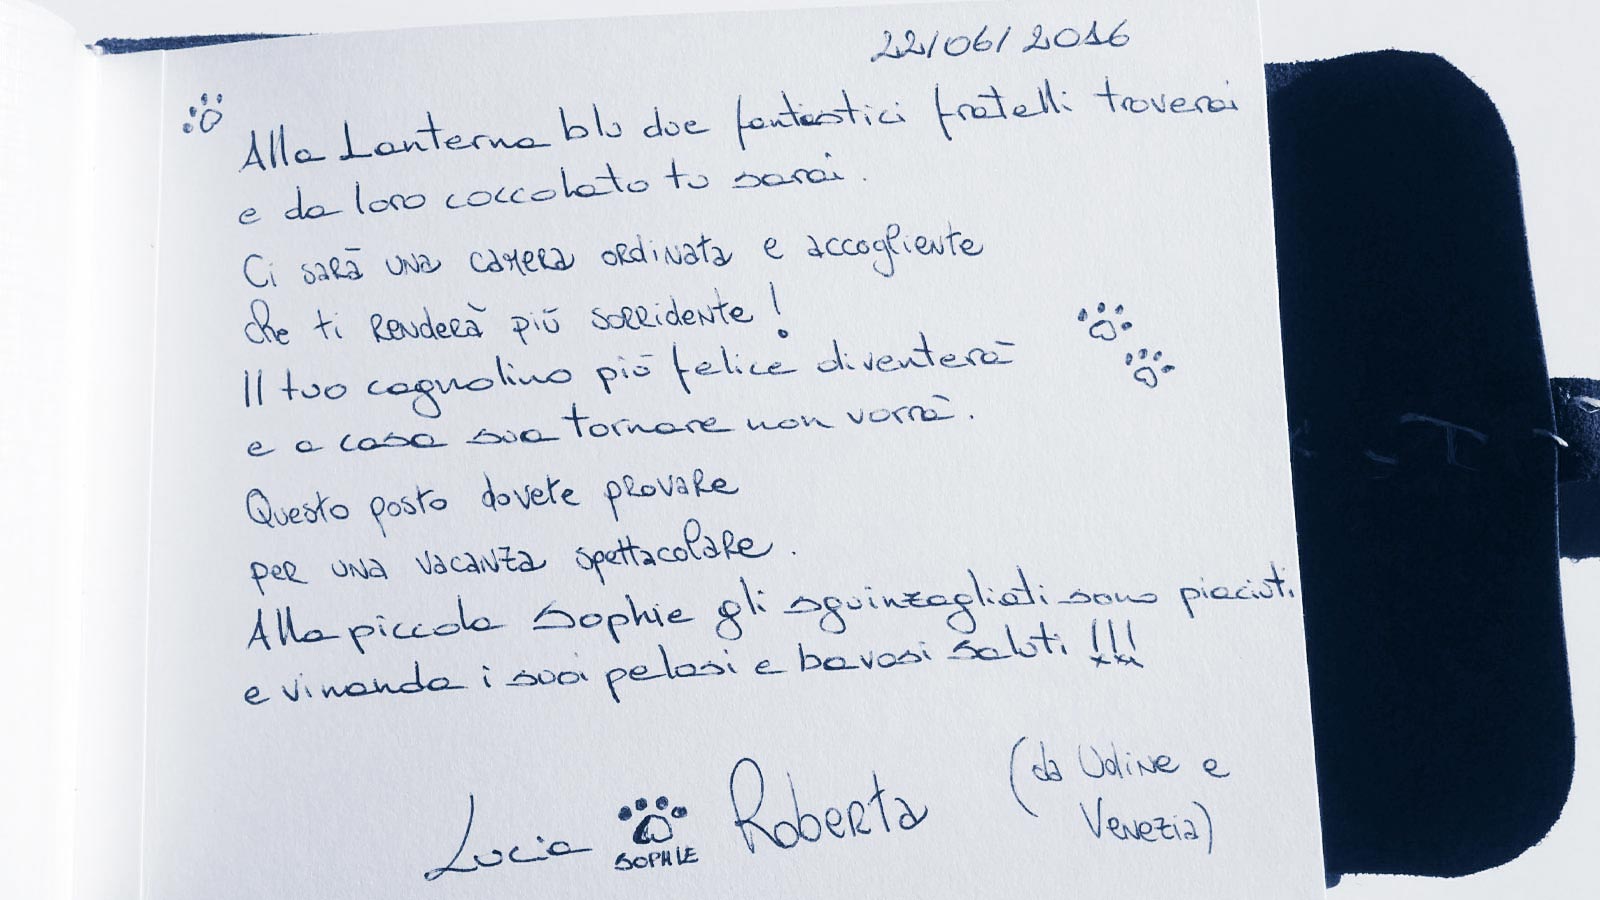 22/06/2016
Alla Lanterna blu due fantastici fratelli troverai
e da loro coccolato tu sarai.
Ci sarà una camera ordinata e accogliente
che ti renderà più sorridente!
Il tuo cagnolino più felice diventerà
e a casa sua tornare non vorrà.
Questo posto dovete provare
per una vacanza spettacolare.
Alla piccola Sophie gli sguinzagliati sono piaciuti
e vi manda i suoi pelosi e bavosi saluti!!!
Lucia SOPHIE Roberta (da Udine e
Venezia)